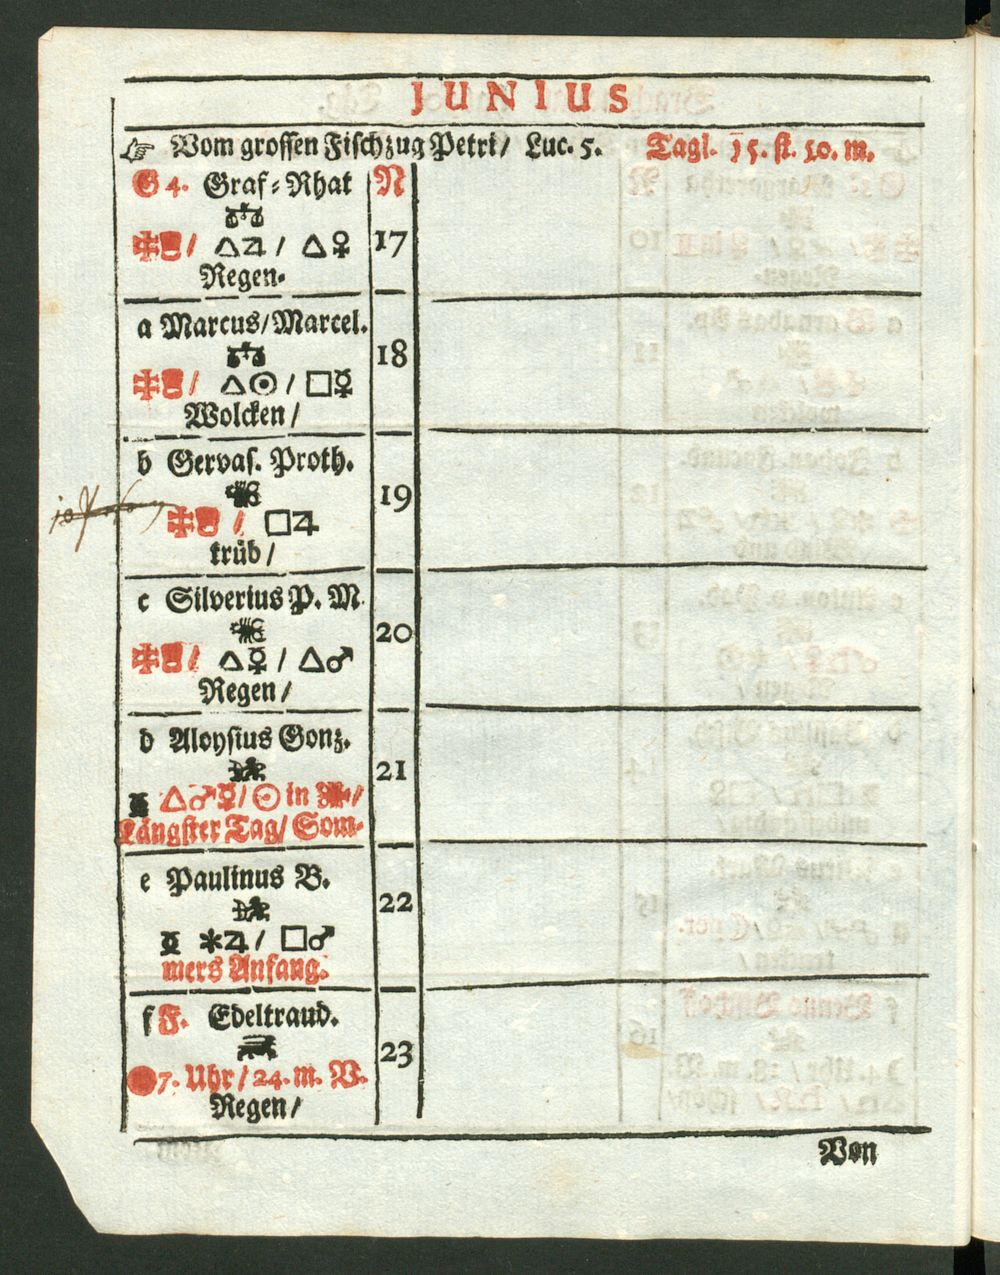 JUNIUS
☞ Vom grossen Fischzug Petri/ Luc. 5. Tagl. 15. st. 50. m.
G 4. Graf-Rhat N
♎
/ △♃/ △♀ 17
Regen-
a Marcus/Marcel.
♎ 18
/ △☉/ □☿
Wolcken/
b Gervas. Proth.
♏ 19
/ □♃
trüb/
c Silverius P. M.
♏ 20
/ △☿/ △♂
Regen/
d Aloysius Gonz.
♐ 21
△♂☿/ ☉ in ♋/
Längster Tag/ Som-
e Paulinus B.
♐ 22
✱♃/ □♂
mers Anfang.
f F. Edeltraud.
♑ 23
●7. Uhr/ 24. m. V.
Regen/
Von